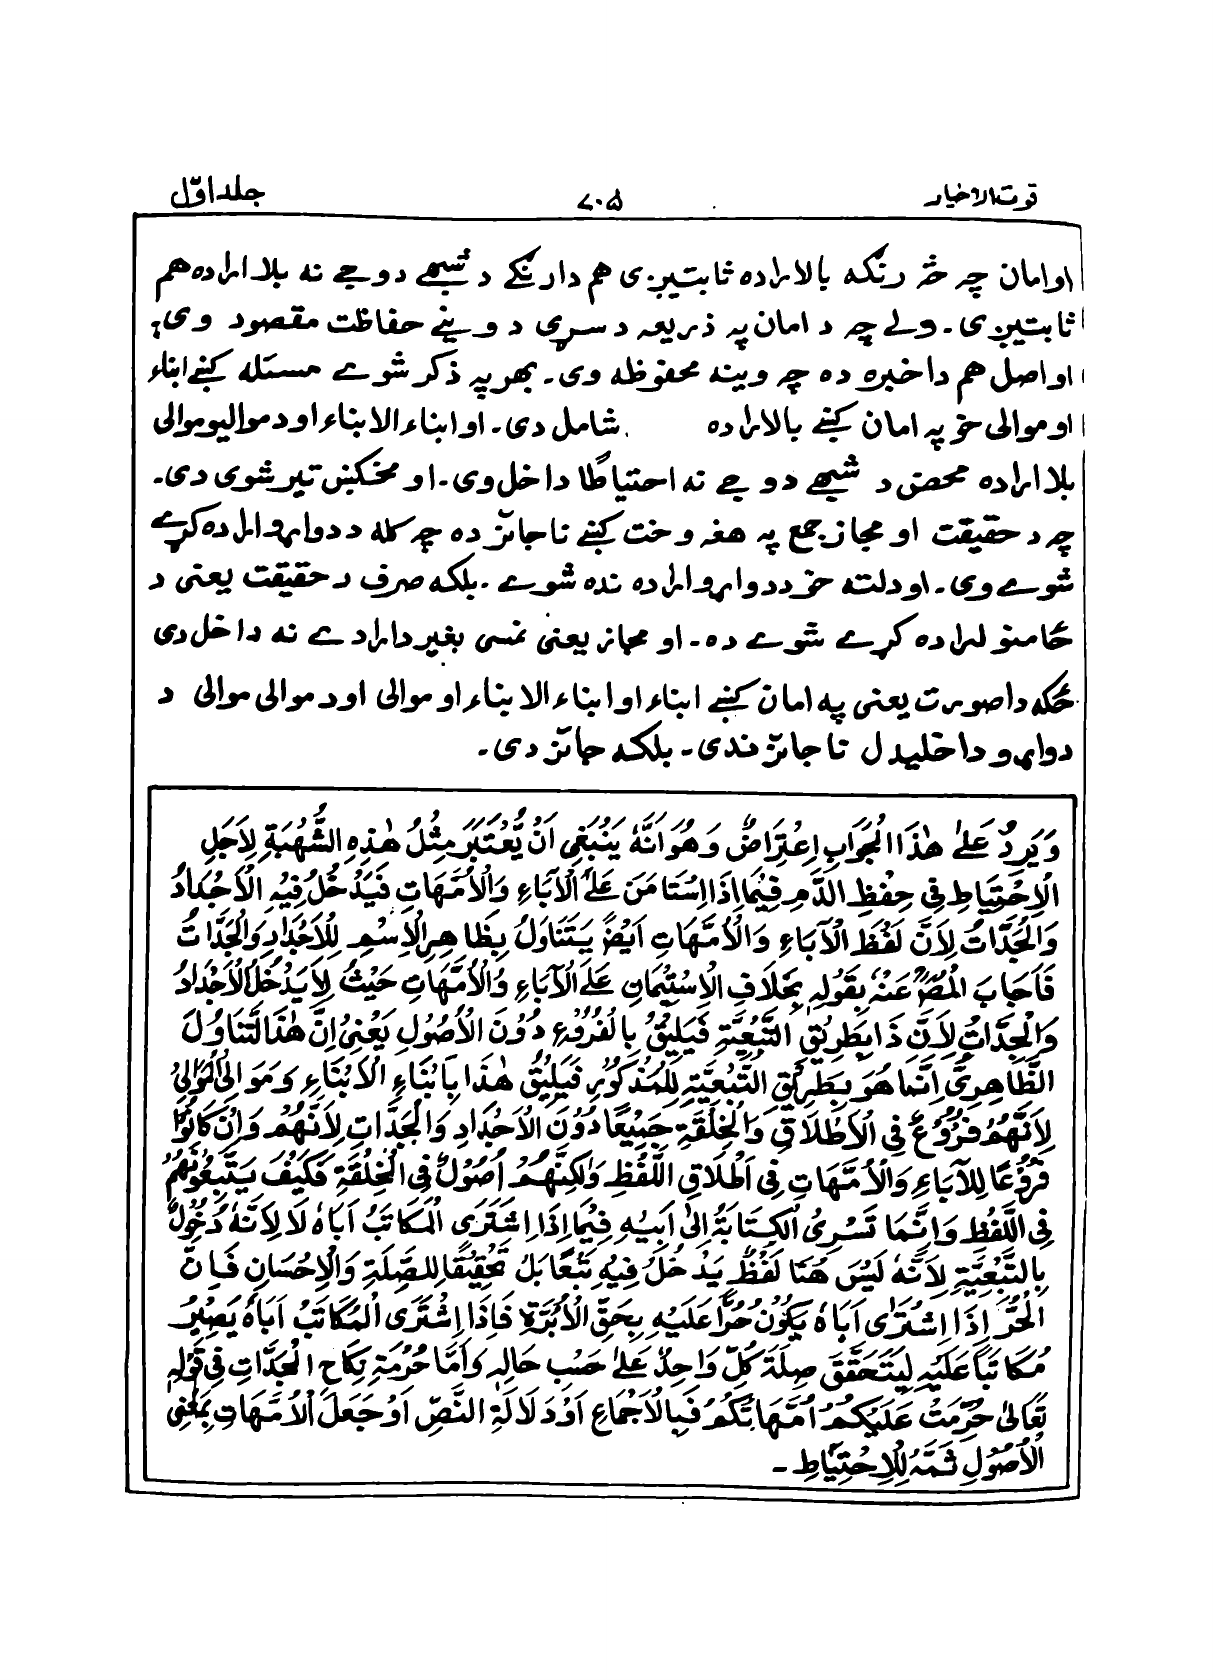 قوت الاخیار ۷۰۵ جلد اوّل
او امان چہ څہ رنګه بالارادہ ثابتیږی ھم دا رنګے د شبھے د وجے نہ بلا ارادہ ھم
ثابتیږی۔ ولے چہ د امان پہ ذریعہ د سړی د وینے حفاظت مقصود وی؛
او اصل ھم دا خبرہ دہ چہ وینہ محفوظہ وی۔ بھر پہ ذکر شوے مسئلہ کښے ابناء
او موالی خو پہ امان کښے بالارادہ شامل دی۔ او ابناء الابناء او د موالیو موالی
بلا ارادہ محض د شبھے د وجے نہ احتیاطًا داخل وی۔ او مخکښ تیر شوی دی۔
چہ د حقیقت او مجاز جمع پہ ھغہ وخت کښے ناجائز دہ چہ کلہ د دواړو ارادہ کړے
شوے وی۔ او دلتہ خو د دواړو ارادہ ندہ شوے۔ بلکہ صرف د حقیقت یعنی د
ځامنو ارادہ کړے شوے دہ۔ او مجاز یعنی نمسی بغیر د ارادے نہ داخل دی
ځکہ دا صورت یعنی پہ امان کښے ابناء او ابناء الابناء او موالی او د موالی موالی د
دواړو داخلیدل ناجائز ندی۔ بلکہ جائز دی۔
وَيَرِدُ عَلىٰ هٰذَا الْجَوَابِ اِعْتِرَاضٌ وَهُوَ اَنَّهٗ يَنْبَغِى اَنْ يُّعْتَبَرَ مِثْلُ هٰذِهِ الشُّبْهَةِ لِاَجَلِ
الْاِحْتِيَاطِ فِى حِفْظِ الدَّمِ فِيْمَا اِذَا اسْتَامَنَ عَلَى الْاٰبَاءِ وَالْاُمَّهَاتِ فَيَدْخُلُ فِيْهِ الْاَجْدَادُ
وَالْجَدَّاتُ لِاَنَّ لَفْظَ الْاٰبَاءِ وَالْاُمَّهَاتِ اَيْضً يَتَنَاوَلُ بِظَاهِرِ الْاِسْمِ لِلْاَجْدَادِ وَالْجَدَّاتُ
فَاَجَابَ الْمُصَرح عَنْهُ بِقَوْلِهٖ بِخِلَافِ الْاِسْتِيْمَانِ عَلَى الْاٰبَاءِ وَالْاُمَّهَاتِ حَيْثُ لَا يَدْخُلُ الْاَجْدَادُ
وَالْجَدَّاتُ لِاَنَّ ذَا بِطَرِيْقِ التَّبْعِيَّةِ فَيَلِيْقُ بِالْفُرُوْعِ دُوْنَ الْاُصُوْلِ يَعْنِىْ اِنَّ هٰذَا التَّنَاوُلَ
الظَّاهِرِىَّ اِنَّمَا هُوَ بِطَرِيْقِ التَّبْعِيَّةِ لِلْمَذْكُوْرِ فَيَلِيْقُ هٰذَا بِاَبْنَاءِ الْاَبْنَاءِ وَمَوَالِى الْمَوَالِىْ
لِاَنَّهُمْ فُرُوْعٌ فِى الْاِطْلَاقِ وَالْخِلْقَةِ جَمِيْعًا دُوْنَ الْاَجْدَادِ وَالْجَدَّاتِ لِاَنَّهُمْ وَاِنْ كَانُوْا
فُرُوْعًا لِلْاٰبَاءِ وَالْاُمَّهَاتِ فِى اَطْلَاقِ اللَّفْظِ وَلٰكِنَّهُمْ اُصُوْلٌ فِى الْخِلْقَةِ فَكَيْفَ يَتَّبِعُوْنَهُمْ
فِى اللَّفْظِ وَاِنَّمَا تَسْرِىُ الْكِتَابَةُ اِلىٰ اَبِيْهِ فِيْمَا اِذَا اِشْتَرَى الْمُكَاتَبُ اَبَاهُ لَا لِاَنَّهٗ دُخُوْلٌ
بِالتَّبْعِيَّةِ لِاَنَّهٗ لَيْسَ هٰنَا لَفْظٌ يَدْخُلُ فِيْهِ تَبْعًا بَلْ تَحْقِيْقًا لِلصِّلَةِ وَالْاِحْسَانِ فَاِنَّ
الْحُرَّ اِذَا اِشْتَرٰى اَبَاهُ يَكُوْنُ حُرًّا عَلَيْهِ بِحَقِّ الْاُبُوَّةِ فَاِذَا اِشْتَرَى الْمُكَاتَبُ اَبَاهُ يَصِيْرُ
مُكَاتَبًا عَلَيْهِ لِيَتَحَقَّقَ صِلَةُ كُلِّ وَاحِدٍ عَلىٰ حَسْبِ حَالِهٖ وَاَمَّا حُرْمَةِ نِكَاحِ الْجَدَّاتِ فِى قَوْلِهٖ
تَعَالىٰ حُرِّمَتْ عَلَيْكُمْ اُمَّهَاتُكُمْ فَبِالْاِجْمَاعِ اَوْ دَلَالَةِ النَّصِّ اَوْ جَعَلَ الْاُمَّهَاتِ بِمَعْنَى
الْاُصُوْلِ ثَمَّهُ لِلْاِحْتِيَاطِ۔